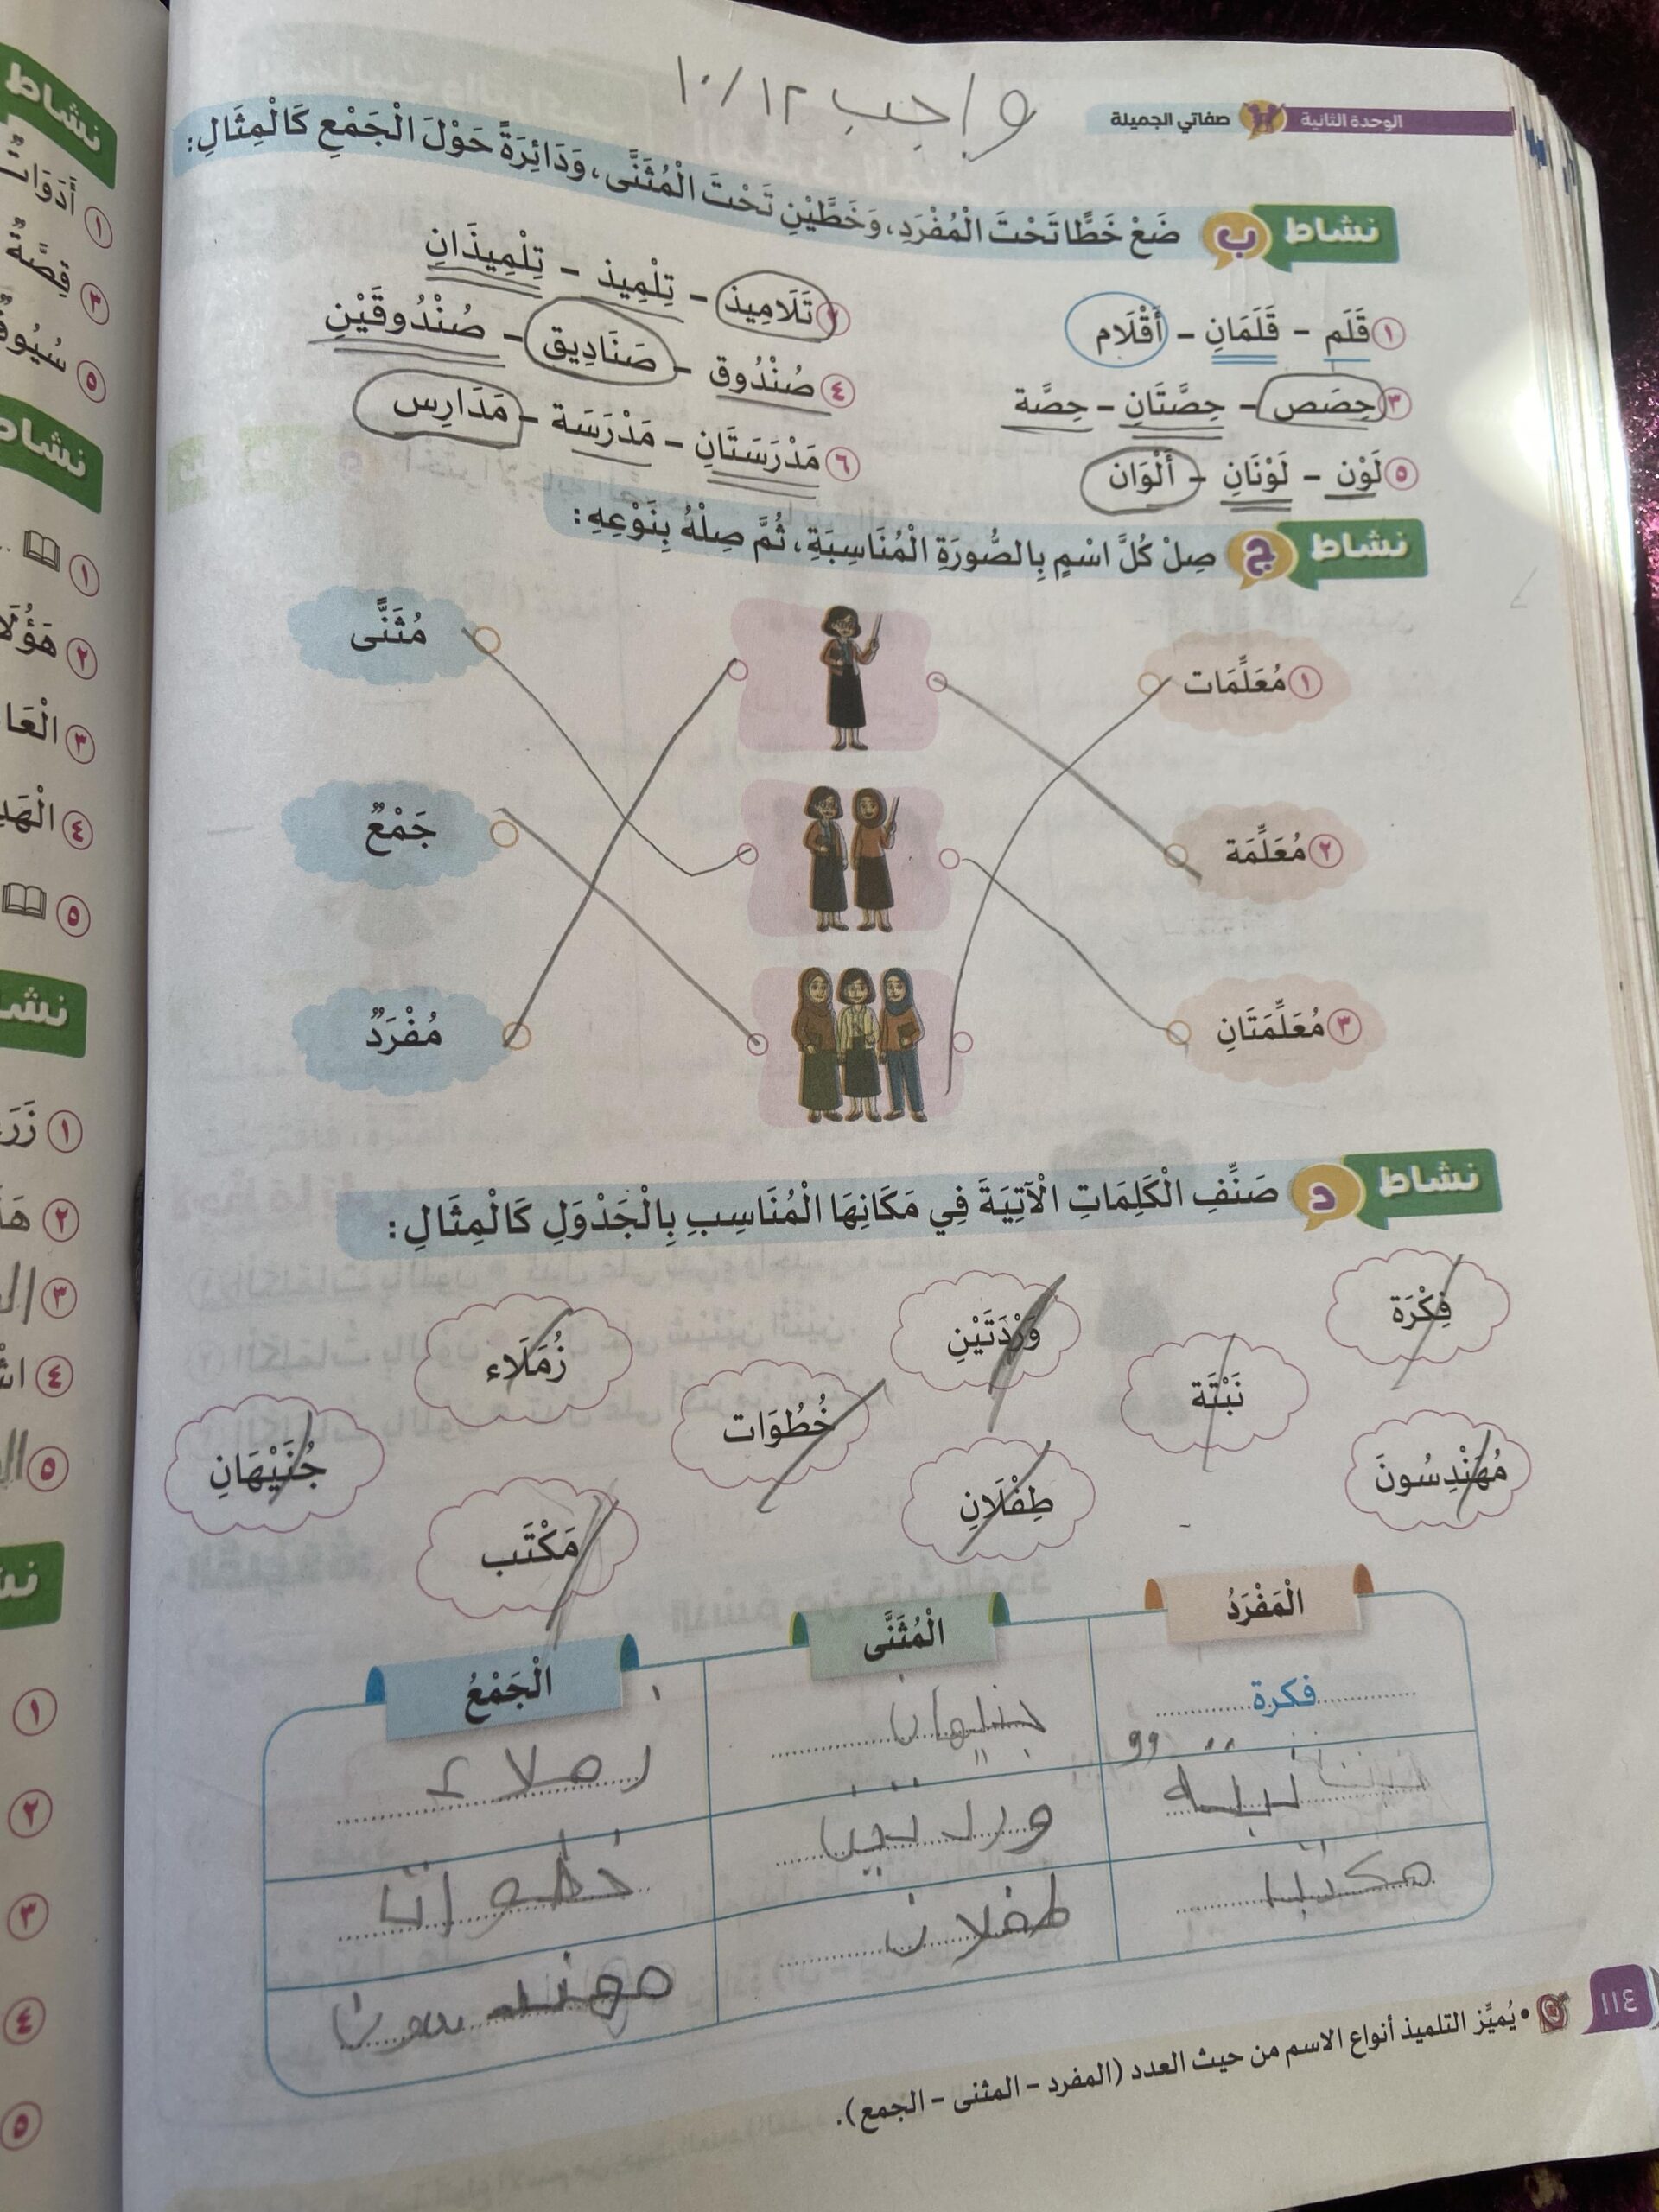 واجب ١٠/١٢
الوحدة الثانية صفاتي الجميلة
نشاط ب ضَعْ خَطًّا تَحْتَ الْمُفْرَدِ، وَخَطَّيْنِ تَحْتَ الْمُثَنَّى، وَدَائِرَةً حَوْلَ الْجَمْعِ كَالْمِثَالِ:
١ قَلَم - قَلَمَانِ - أَقْلَام
٢ تَلَامِيذ - تِلْمِيذ - تِلْمِيذَانِ
٣ حِصَص - حِصَّتَانِ - حِصَّة
٤ صُنْدُوق - صَنَادِيق - صُنْدُوقَيْنِ
٥ لَوْن - لَوْنَانِ - أَلْوَان
٦ مَدْرَسَتَانِ - مَدْرَسَة - مَدَارِس
نشاط ج صِلْ كُلَّ اسْمٍ بِالصُّورَةِ الْمُنَاسِبَةِ، ثُمَّ صِلْهُ بِنَوْعِهِ:
١ مُعَلِّمَات
مُثَنًّى
٢ مُعَلِّمَة
جَمْعٌ
٣ مُعَلِّمَتَانِ
مُفْرَدٌ
نشاط د صَنِّفِ الْكَلِمَاتِ الْآتِيَةَ فِي مَكَانِهَا الْمُنَاسِبِ بِالْجَدْوَلِ كَالْمِثَالِ:
فِكْرَة
وَرْدَتَيْنِ
زُمَلَاء
نَبْتَة
خُطُوَات
جُنَيْهَانِ
مُهَنْدِسُونَ
طِفْلَانِ
مَكْتَب
الْمُفْرَدُ الْمُثَنَّى الْجَمْعُ
فكرة جنيهان زملاء
نبتة وردتين خطوات
مكتب طفلان مهندسون
• يُميِّز التلميذ أنواع الاسم من حيث العدد (المفرد - المثنى - الجمع).
١١٤
نشاط
١ أَدَوَات
٣ قِصَّة
٥
نشاط
١
٢
٣
٤
٥
١
٢
٣
٤
٥
١
٢
٣
٤
٥